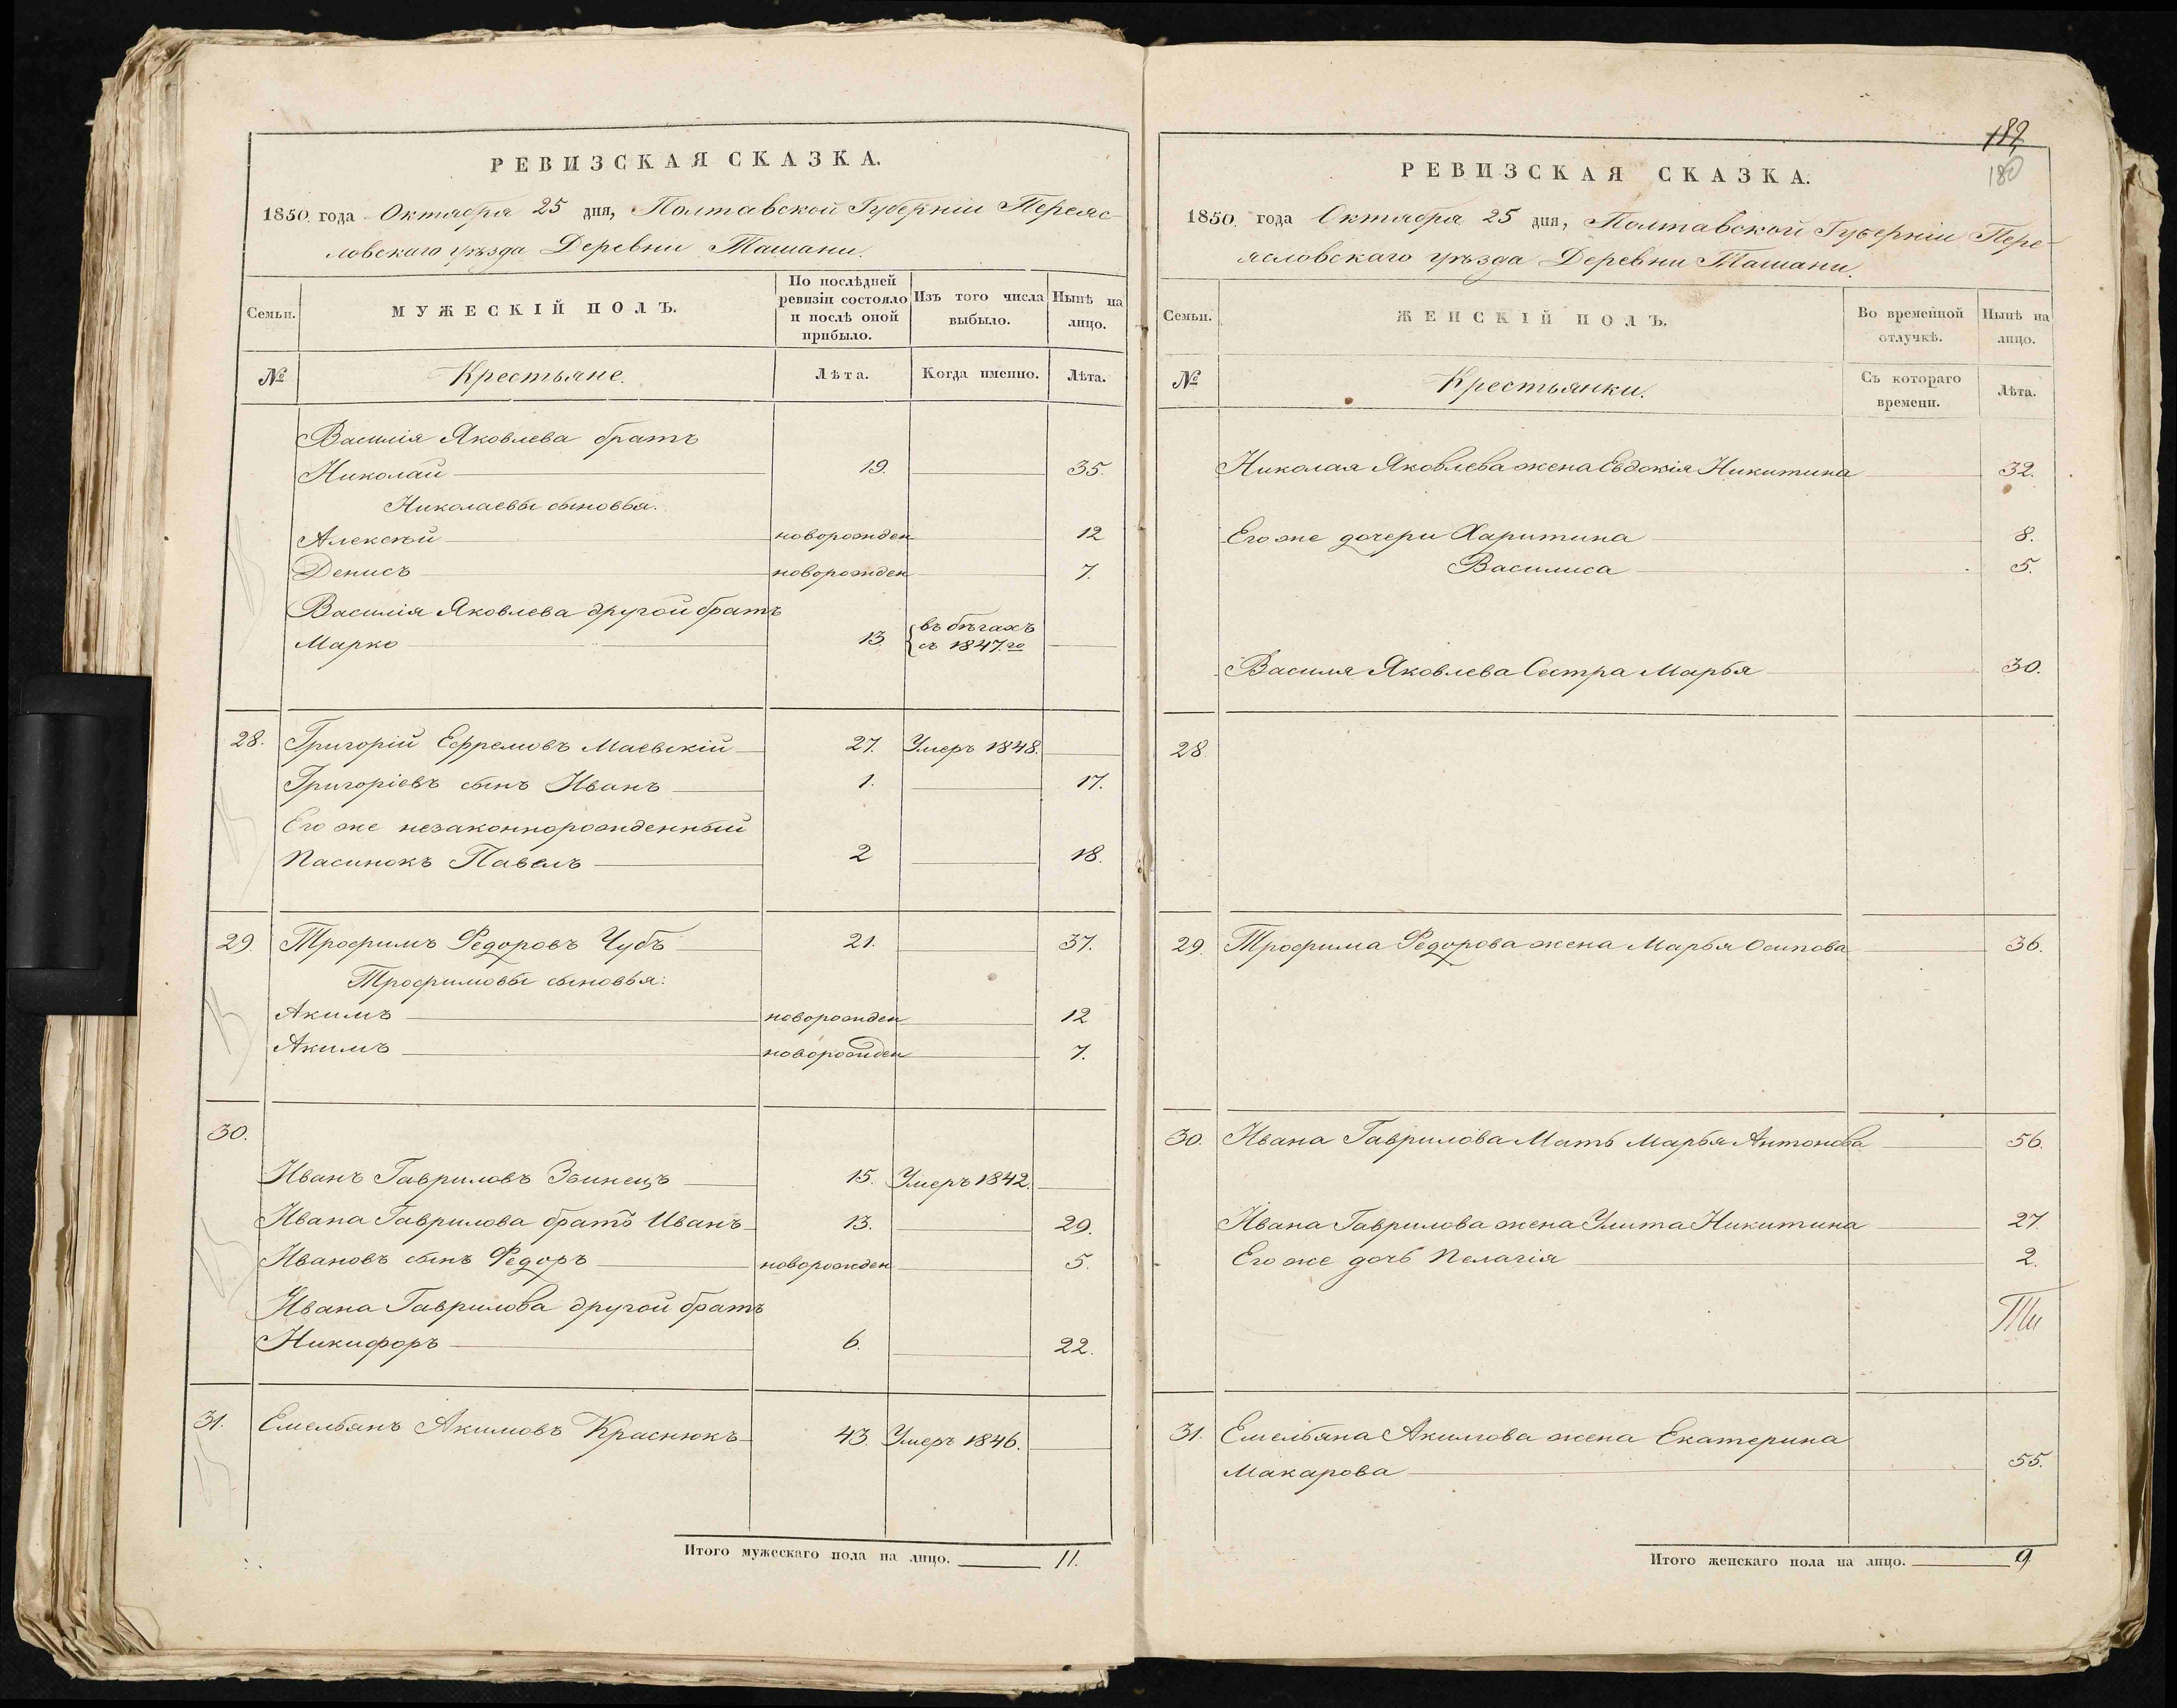 РЕВИЗСКАЯ СКАЗКА.
1850 года Октября 25 дня, Полтавской Губерніи Переяс-
ловскаго уѣзда Деревни Ташани.
Семьи. МУЖЕСКІЙ ПОЛЪ. По послѣдней ревизіи состояло и послѣ оной прибыло. Изъ того числа выбыло. Нынѣ на лицо.
№ Крестьяне. Лѣта. Когда именно. Лѣта.
Василія Яковлева братъ
Николай 19. 35.
Николаевы сыновья:
Алексѣй новорожден 12
Денисъ новорожден 7.
Василія Яковлева другой братъ
Марко 13. въ бѣгахъ съ 1847.го
28. Григорій Ефремовъ Маевскій 27. Умеръ 1848.
Григоріевъ сынъ Иванъ 1. 17.
Его же незаконнорожденный
Пасинокъ Павелъ 2 18.
29. Трофимъ Федоровъ Чубъ 21. 37.
Трофимовы сыновья:
Акимъ новорожден 12
Акимъ новорожден 7.
30.
Иванъ Гавриловъ Звинецъ 15. Умеръ 1842.
Ивана Гаврилова братъ Иванъ 13. 29.
Ивановъ сынъ Федоръ новорожден 5.
Ивана Гаврилова другой братъ
Никифоръ 6. 22.
31. Емельянъ Акимовъ Краснюкъ 43. Умеръ 1846.
Итого мужескаго пола на лицо. 11.
189
180
РЕВИЗСКАЯ СКАЗКА.
1850. года Октября 25 дня, Полтавской Губерніи Пере-
ясловскаго уѣзда Деревни Ташани.
Семьи. ЖЕНСКІЙ ПОЛЪ. Во временной отлучкѣ. Нынѣ на лицо.
№ Крестьянки. Съ котораго времени. Лѣта.
Николая Яковлева жена Евдокія Никитина 32.
Его же дочери Харитина 8.
Василиса 5.
Василя Яковлева Сестра Марья 30.
28.
29. Трофима Федорова жена Марья Осипова 36.
30. Ивана Гаврилова Мать Марья Антонова 56.
Ивана Гаврилова жена Улита Никитина 27.
Его же дочь Пелагія 2.
31. Емельяна Акимова жена Екатерина
Макарова 55.
Итого женскаго пола на лицо. 9